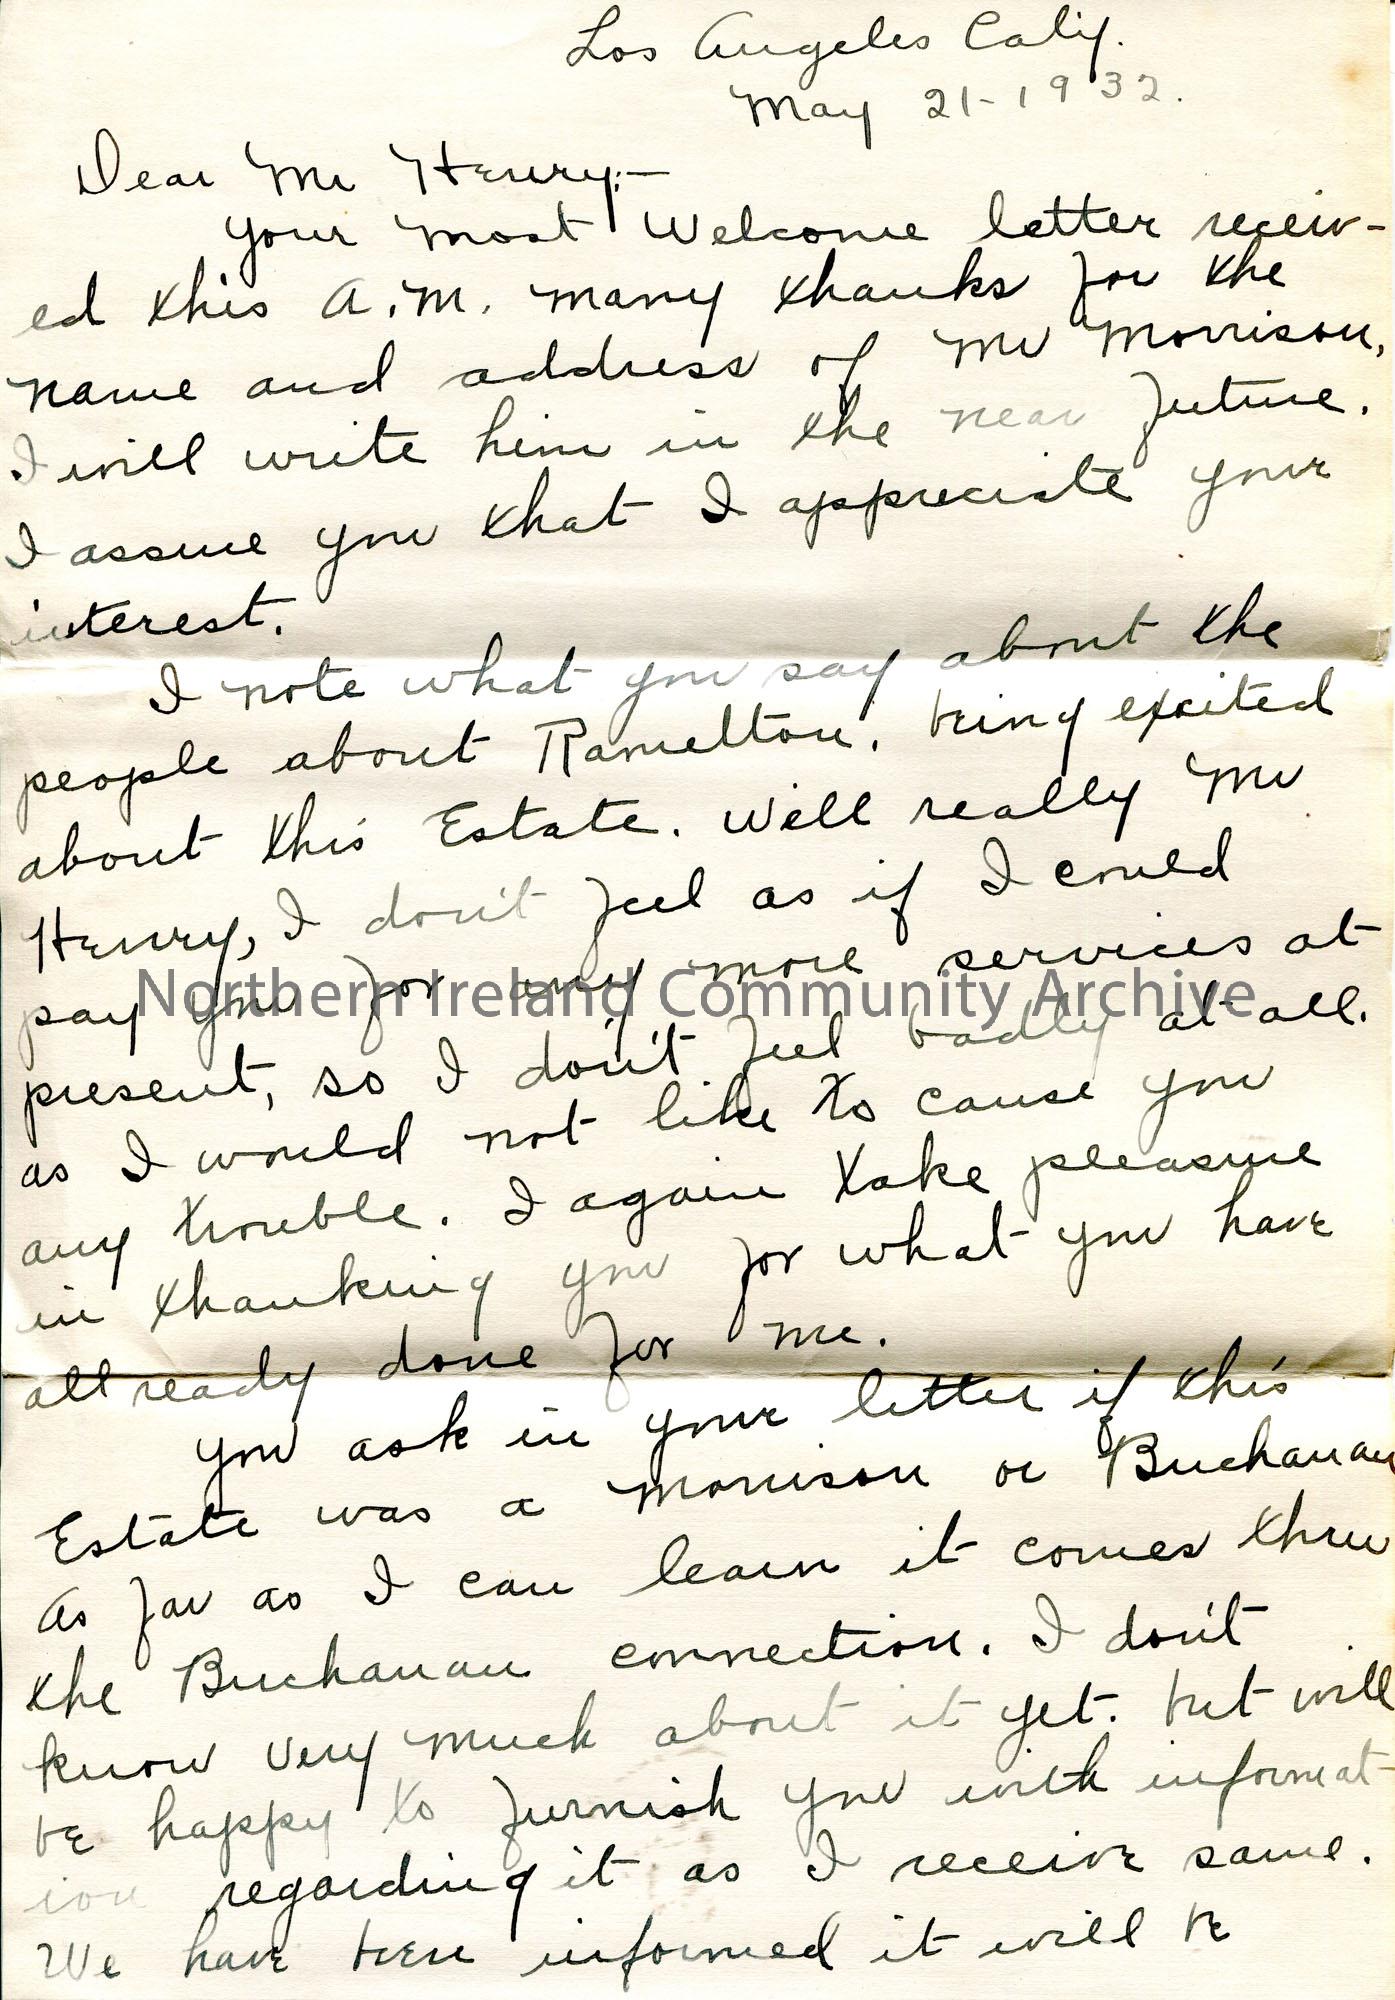 Los Angeles Calif.
May 21-1932.
Dear Mr Henry:-
Your most Welcome letter receiv-
ed this A.M. many thanks for the
name and address of Mr Morrison,
I will write him in the near future.
I assure you that I appreciate your
interest.
I note what you say about the
people about Ramelton, being excited
about this Estate. Well really Mr
Henry, I don't feel as if I could
pay you for any more services at
Northern Ireland Community Archive
present, so I don't feel badly at all.
as I would not like to cause you
any trouble. I again take pleasure
in thanking you for what you have
all ready done for me.
You ask in your letter if this
Estate was a Morrison or Buchanan
As far as I can learn it comes thru
the Buchanan connection. I don't
know very much about it yet. but will
be happy to furnish you with informat-
ion regarding it as I receive same.
We have been informed it will be